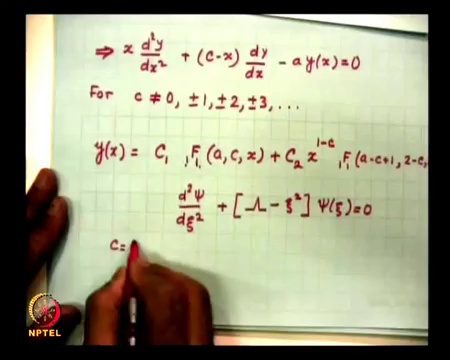 ⇒ x d²y/dx² + (c-x) dy/dx - a y(x) = 0
For c ≠ 0, ±1, ±2, ±3, . . .
y(x) = C₁ ₁F₁(a, c, x) + C₂ x^{1-c} ₁F₁(a-c+1, 2-c,
d²Ψ/dξ² + [Λ - ξ²] Ψ(ξ) = 0
c=
NPTEL